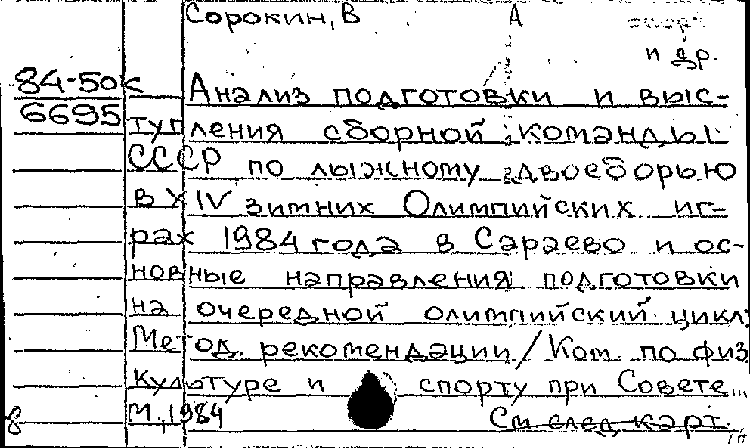 Сорокин, В А
и др.
84-50к
6695
Анализ подготовки и выс-
тупления сборной команды
СССР по лыжному двоеборью
в XIV зимних Олимпийских иг-
рах 1984 года в Сараево и ос-
новные направления подготовки
на очередной олимпийский цикл:
Метод. рекомендации / Ком. по физ.
культуре и спорту при Совете...
М., 1984
См след. карт.
8